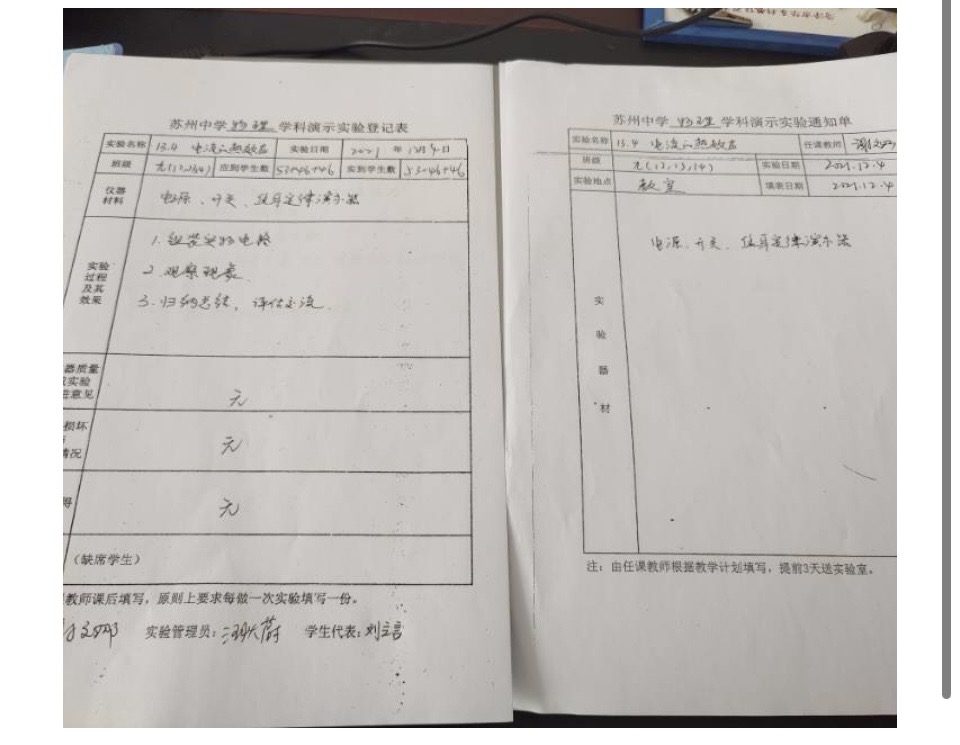 苏州中学 物理 学科演示实验登记表
实验名称 13.4 电流的热效应 实验日期 2021 年 12月4日
班级 应到学生数 53+46+46 实到学生数 53+46+46
仪器材料 电源、开关、焦耳定律演示器
实验过程及其效果
1. 组装实物电路
2. 观察现象
3. 归纳总结，评估交流.
器质量
实验
意见
无
损坏
情况
无
无
（缺席学生）
教师课后填写，原则上要求每做一次实验填写一份。
实验管理员： 学生代表：
苏州中学 物理 学科演示实验通知单
实验名称 13.4 电流的热效应 任课教师
班级 (12,13,14) 实验日期 2021.12.4
实验地点 教室 填表日期 2021.12.4
实验器材
电源、开关、焦耳定律演示器
注：由任课教师根据教学计划填写，提前3天送实验室。